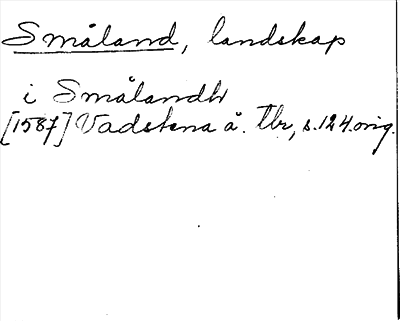 Småland, landskap
i Smålandh
[1587] Vadstena å. Tbr, s. 124. orig.